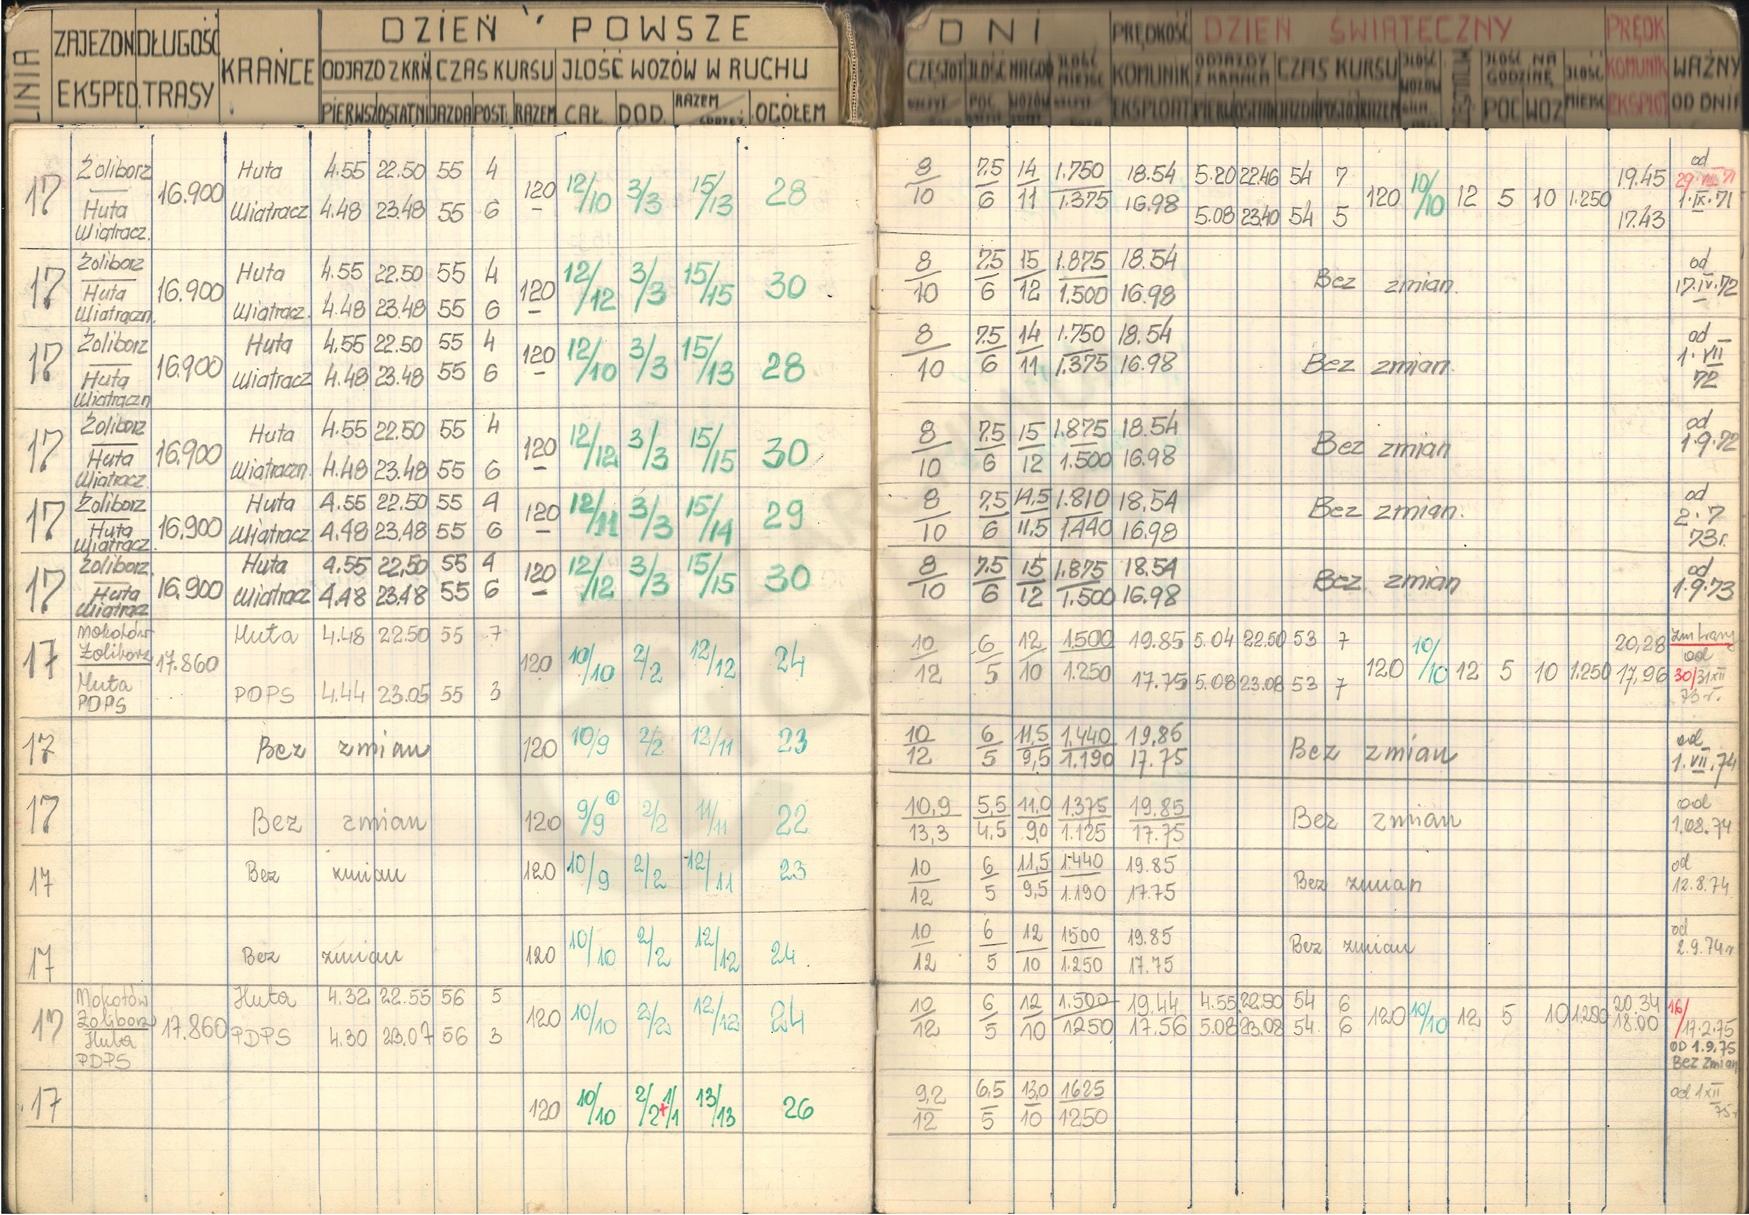 LINIA ZAJEZDN. EKSPED. DŁUGOŚĆ TRASY KRAŃCE DZIEŃ POWSZEDNI
ODJAZD Z KRŃ. CZAS KURSU JLOŚĆ WOZÓW W RUCHU
PIERWSZ OSTATNI JAZDA POST. RAZEM CAŁ. DOD. RAZEM OGÓŁEM
PRĘDKOŚĆ KOMUNIK EKSPLOAT DZIEŃ ŚWIĄTECZNY PRĘDK KOMUNIK EKSPLOT WAŻNY OD DNIA
CZAS KURSU JLOŚĆ NA GODZINĘ POC WOZ MIEJSC
17 Żoliborz Huta Wiatracz. 16.900 Huta 4.55 22.50 55 4 120 12/10 3/3 15/13 28 8/10 7.5/6 14/11 1.750/1.375 18.54 5.20 22.46 54 7 120 10/10 12 5 10 1.250 19.45 od 29.VIII.71
Wiatracz 4.48 23.48 55 6 16.98 5.08 23.40 54 5 17.43 1.IX.71
17 Żoliborz Huta Wiatraczn. 16.900 Huta 4.55 22.50 55 4 120 12/12 3/3 15/15 30 8/10 7.5/6 15/12 1.875/1.500 18.54 Bez zmian. od 17.IV.72
Wiatracz. 4.48 23.48 55 6 16.98
17 Żoliborz Huta Wiatraczn 16.900 Huta 4.55 22.50 55 4 120 12/10 3/3 15/13 28 8/10 7.5/6 14/11 1.750/1.375 18.54 Bez zmian. od 1.VII 72
Wiatracz 4.48 23.48 55 6 16.98
17 Żoliborz Huta Wiatracz. 16.900 Huta 4.55 22.50 55 4 120 12/12 3/3 15/15 30 8/10 7.5/6 15/12 1.875/1.500 18.54 Bez zmian od 1.9.72
Wiatraczn. 4.48 23.48 55 6 16.98
17 Żoliborz Huta Wiatracz. 16.900 Huta 4.55 22.50 55 4 120 12/11 3/3 15/14 29 8/10 7.5/6 14.5/11.5 1.810/1.440 18.54 Bez zmian. od 2.7 73r.
Wiatracz 4.48 23.48 55 6 16.98
17 Żoliborz. Huta Wiatracz 16.900 Huta 4.55 22.50 55 4 120 12/12 3/3 15/15 30 8/10 7.5/6 15/12 1.875/1.500 18.54 Bez zmian od 1.9.73
Wiatracz 4.48 23.48 55 6 16.98
17 Mokotów Żoliborz Huta PDPS 17.860 Huta 4.48 22.50 55 7 120 10/10 2/2 12/12 24 10/12 6/5 12/10 1.500/1.250 19.85 5.04 22.50 53 7 120 10/10 12 5 10 1.250 20,28 od 30/31 XII 73 r.
PDPS 4.44 23.05 55 3 17.75 5.08 23.08 53 7 17,96
17 Bez zmian 120 10/9 2/2 12/11 23 10/12 6/5 11,5/9,5 1.440/1.190 19,86 17.75 Bez zmian od 1.VII.74
17 Bez zmian 120 9/9 ① 2/2 11/11 22 10,9/13,3 5,5/4,5 11,0/90 1.375/1.125 19.85/17.75 Bez zmian od 1.08.74
17 Bez zmian 120 10/9 2/2 12/11 23 10/12 6/5 11,5/9,5 1.440/1.190 19.85 17.75 Bez zmian od 12.8.74
17 Bez zmian 120 10/10 2/2 12/12 24 10/12 6/5 12/10 1500/1.250 19.85 17.75 Bez zmian od 2.9.74r
17 Mokotów Żoliborz Huta PDPS 17.860 Huta 4.32 22.55 56 5 120 10/10 2/2 12/12 24 10/12 6/5 12/10 1.500/1250 19.44 4.55 22.50 54 6 120 10/10 12 5 10 1.250 20.34 16/17.2.75
PDPS 4.30 23.07 56 3 17.56 5.08 23.08 54. 6 18.00 OD 1.9.75 Bez zmian
17 120 10/10 2/2+1/1 13/13 26 9,2/12 6,5/5 13,0/10 1625/1250 od 1 XII 75r